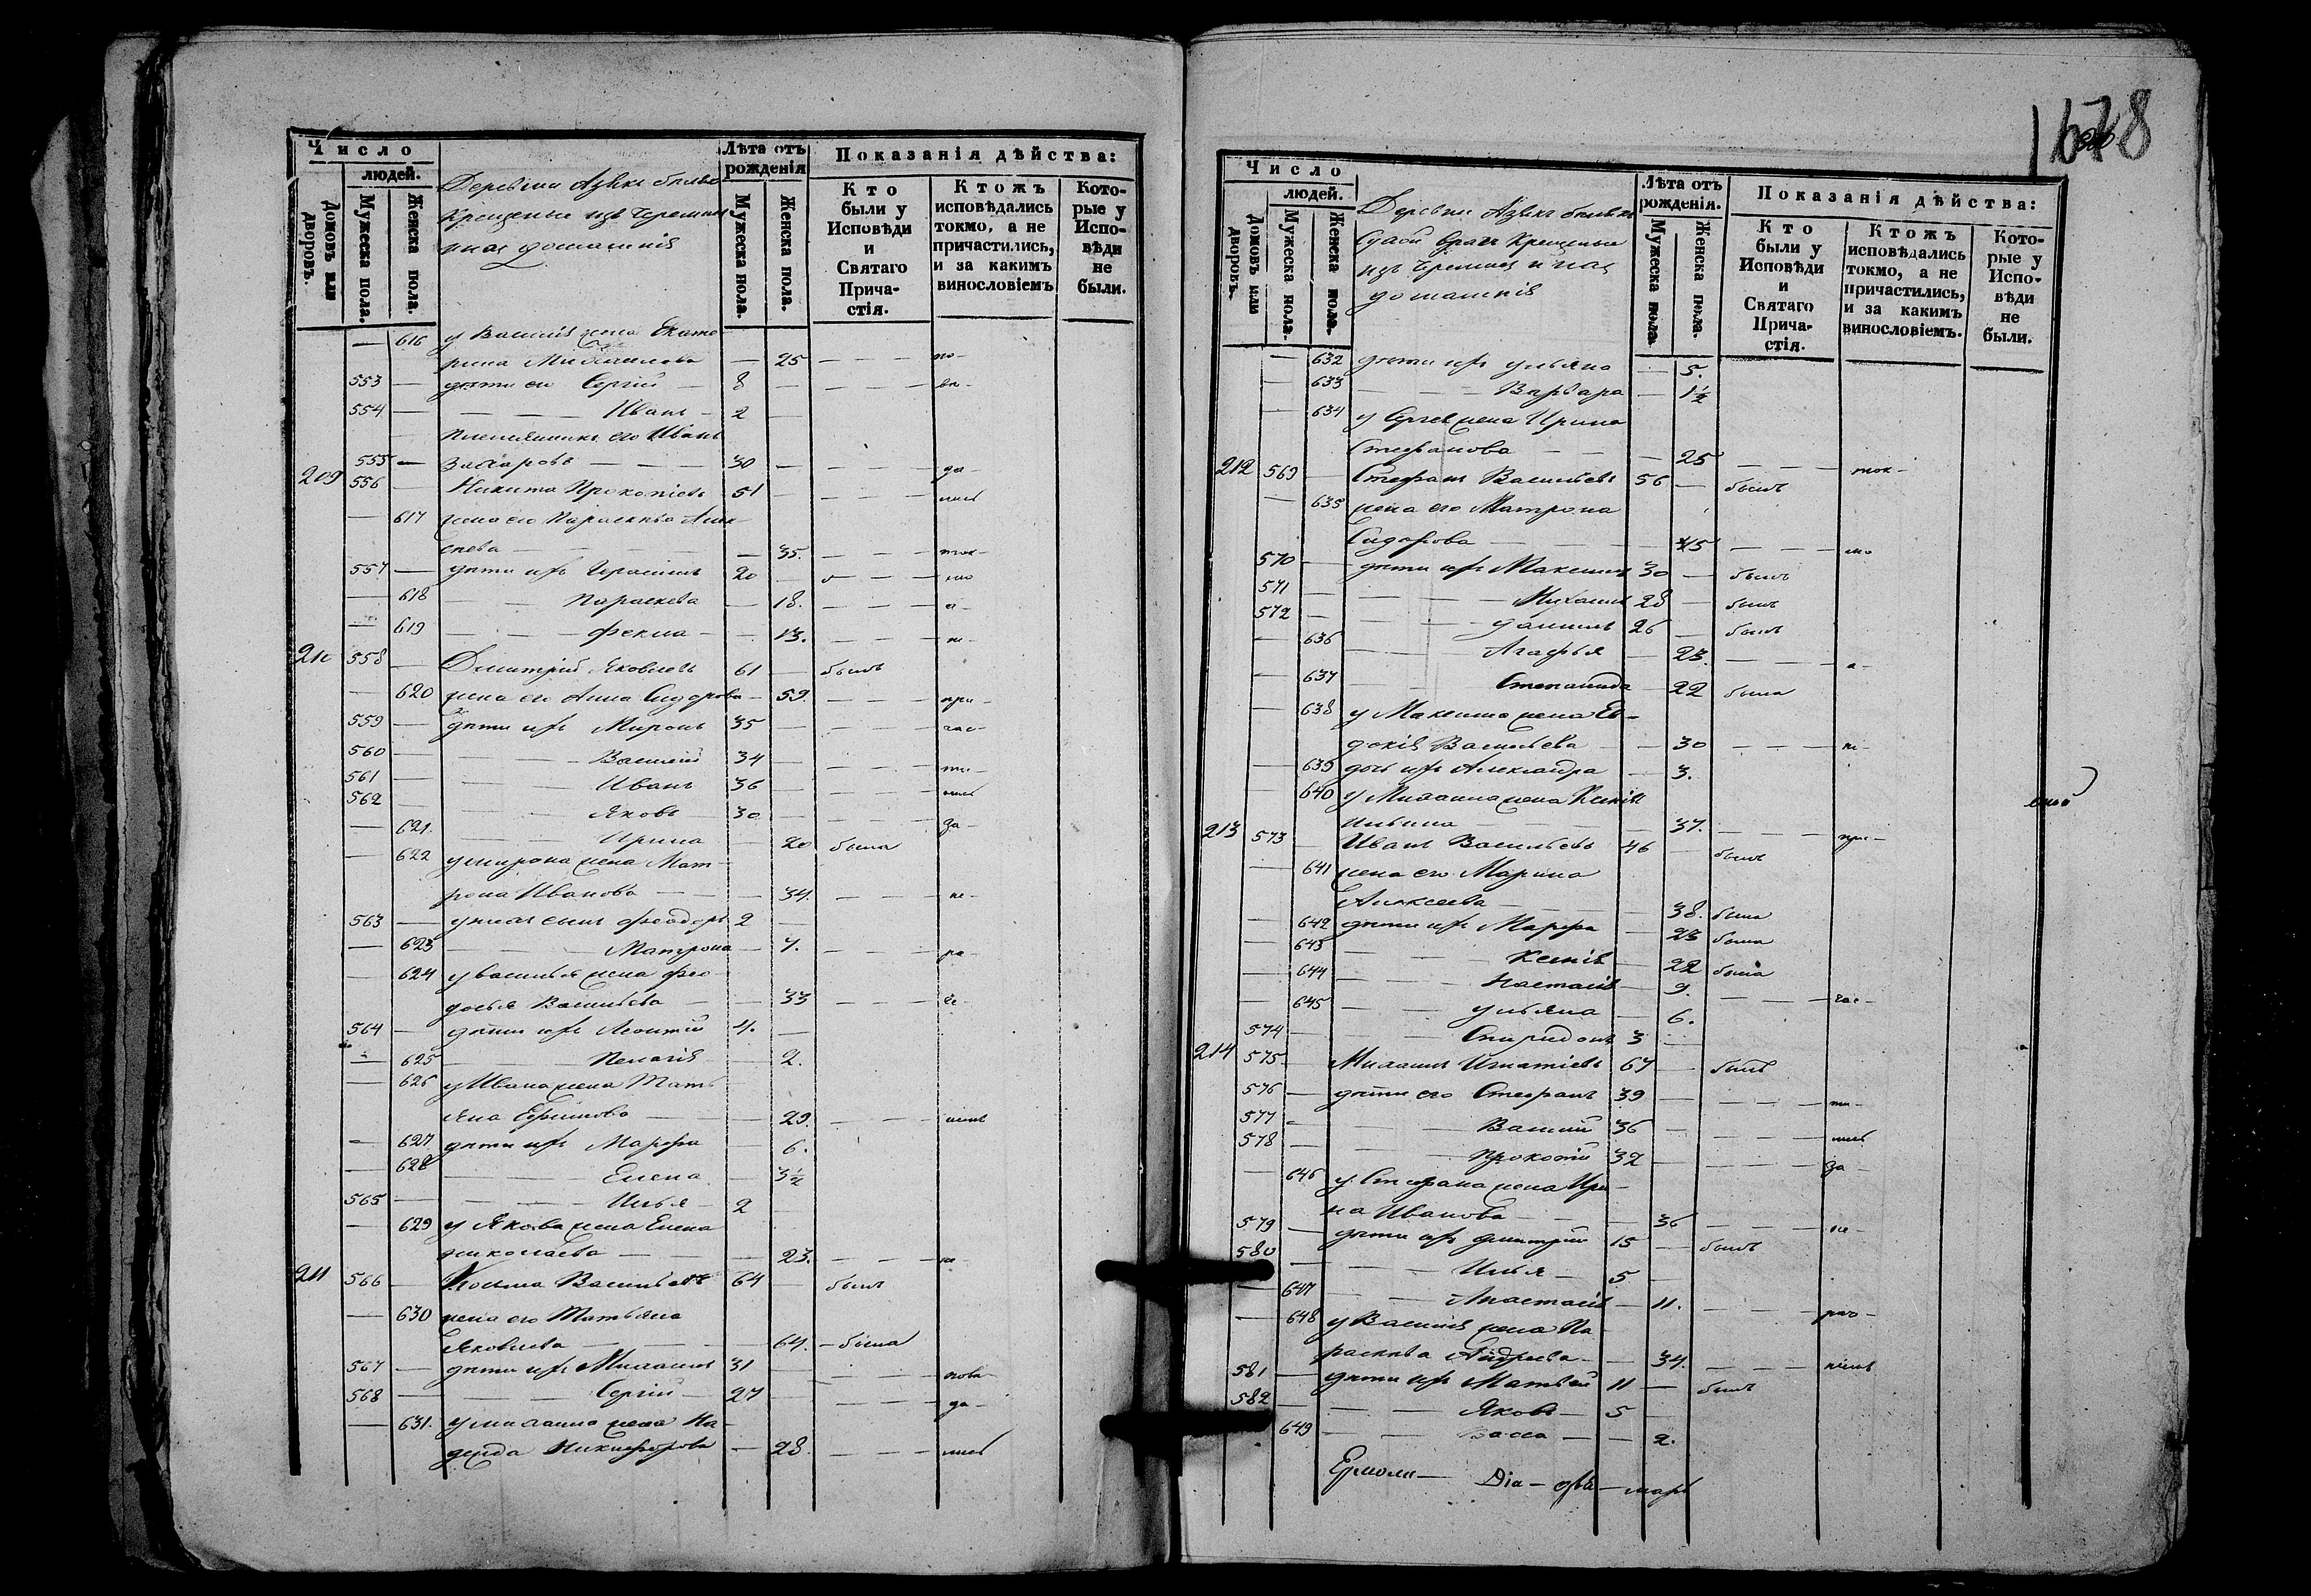 Число
людей.
Домовъ или дворовъ.
Мужеска пола.
Женска пола.
Деревни Азвкъ
крещеные изъ Черемисъ
домашнія
Лѣта отъ рожденія
Мужеска пола.
Женска пола.
Показанія дѣйства:
Кто были у Исповѣди и Святаго Прича-стія.
Ктожъ исповѣдались токмо, а не причастились, и за какимъ винословіемъ
Кото-рые у Испо-вѣди не были.
— 616 у Василія жена Екате-
рина Михайлова — 25 — — — по-
553 — дѣти его Сергій — 8 — — — —
554 — — — Иванъ — 2 —
племянникъ его Иванъ
555 — Захаровъ — — — 30 — — — — да-
209 556 — Никита Прокопіевъ 51 — — — —
— 617 жена его Параскева Алек-
сѣева — — — — 35. — — — ток-
557 — дѣти ихъ Герасимъ 20 — — — — мо
— 618 — — Параскева — 18. — — — а-
— 619 — — Фекла — — 13. — — — не-
210 558 — Димитрій Яковлевъ 61 — былъ
— 620 жена его Анна Сидорова — 59. — — — при-
559 — дѣти ихъ Миронъ 35 — — — — час-
560 — — — Василій 34 — — — — ти-
561 — — — Иванъ 36 — — — — лись
562 — — — Яковъ — 30 — — — — за-
— 621. — — Ирина — 20 была
— 622 у Мирона жена Мат-
рона Иванова — — — 34. — — — не-
563 — у нихъ сынъ Феодоръ 2 —
— 623 — — — Матрона — 7. — — — ра-
— 624 у Василья жена Фео-
досья Васильева — — 33 — — —
564 — дѣти ихъ Леонтій 4. —
— 625 — — Пелагія — 2.
— 626 у Ивана жена Тать-
яна Ефимова — — 29. — — — ніемъ
— 627 дѣти ихъ Марфа — 6.
— 628 — — Елена — 3½
565 — — — Илья — 2 —
— 629 у Якова жена Елена
Николаева — — — 23. — — — не-
211 566 — Косьма Васильевъ 64 — былъ
— 630 жена его Татьяна
Яковлева — — — — 64. — была
567 — дѣти ихъ Михаилъ 31 — — — —
568 — — — Сергій — 27 — — — — да-
— 631. у Михаила жена На-
дежда Никифорова — 28. — — — лись
678
Число
людей.
Домовъ или дворовъ.
Мужеска пола.
Женска пола.
Деревни Азвкъ
врагъ крещеные
изъ Черемисъ
домашнія
Лѣта отъ рожденія.
Мужеска пола.
Женска пола.
Показанія дѣйства:
Кто были у Исповѣди и Святаго Прича-стія.
Ктожъ исповѣдались токмо, а не причастились, и за какимъ винословіемъ.
Кото-рые у Испо-вѣди не были.
— 632 дѣти ихъ Ульяна — 5.
— 633 — — Варвара — 1½
— 634 у Сергея жена Ирина
Стефанова — — — 25 — — — ток-
212 569 — Стефанъ Васильевъ 56 — былъ
— 635 жена его Матрона
Сидорова — — — 45 — — — мо
570 — дѣти ихъ Максимъ 30 — былъ
571 — — — Михаилъ 28 — былъ
572 — — — Даниилъ 26 — былъ
— 636 — — Агафья — 23. — — — а-
— 637 — — Степанида — 22 была
— 638 у Максима жена Ев-
докія Васильева — — 30 — — — не-
— 639 дочь ихъ Александра — 3.
— 640 у Михаила жена Ксенія
Ильина — — — 37. — — — при-
213 573 — Иванъ Васильевъ 46 — былъ
— 641 жена его Марина
Алексеева — — — 38. была
— 642 дѣти ихъ Марфа — 23 была
— 643 — — Ксенія — 22 была
— 644 — — Настасія — 9. — — — час-
— 645 — — Ульяна — 6.
574 — — — Спиридонъ 3 —
214 575 — Михаилъ Игнатіевъ 67 — былъ
576 — дѣти его Стефанъ 39 — — — — ти-
577 — — — Василій 36 — — — — лись
578 — — — Прокопій 32 — — — — за-
— 646 у Стефана жена Ири-
на Иванова — — — 36 — — — не-
579 — дѣти ихъ Димитрій 15 — былъ
580 — — — Илья — 5 —
— 647 — — Анастасія — 11. — — — ра-
— 648 у Василія жена Па-
раскева Андреева — — 34. — — — ніемъ
581 — дѣти ихъ Матвей 11 — былъ
582 — — — Яковъ — 5 —
— 649 — — Васса — — 2.